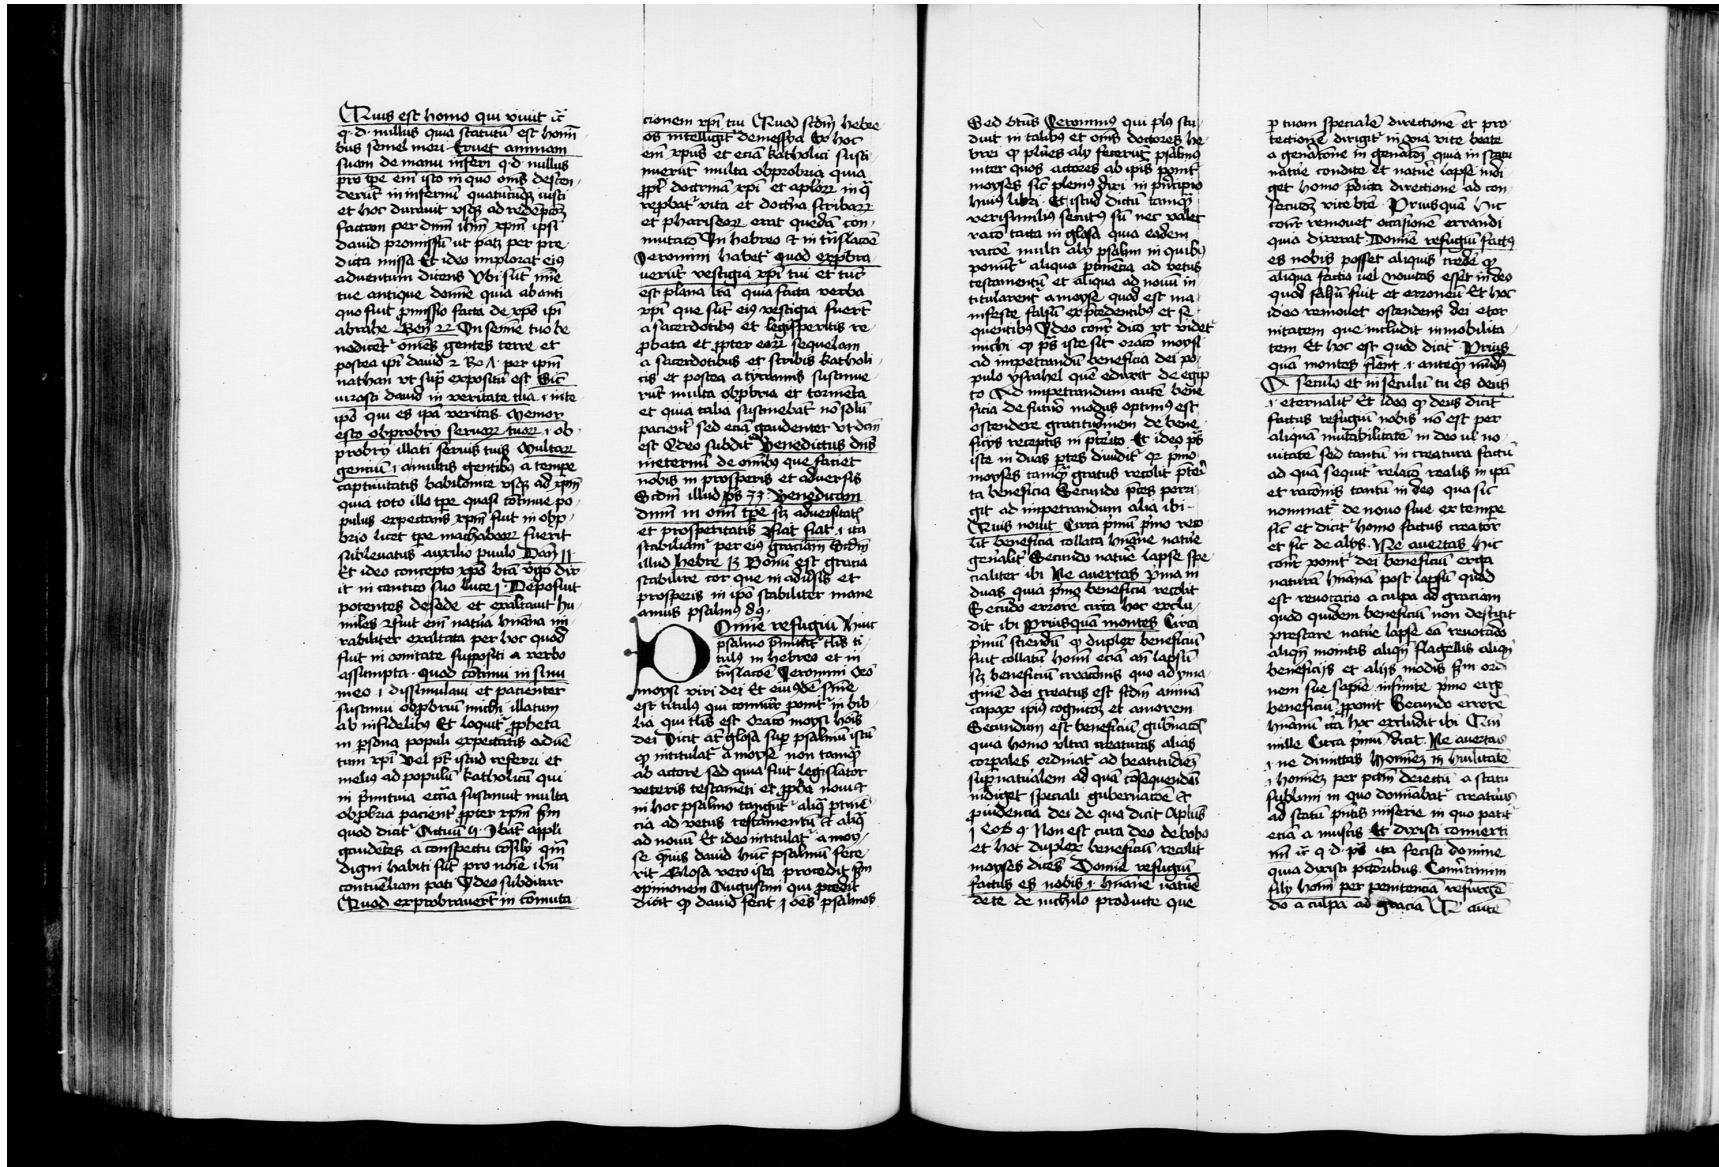 Quis est homo qui vivit ⁊c̄
q· d· nullus quia statutū est homī
bus semel mori· Eruet animam
suam de manu inferi q·d· nullus
pro tp̄e em̄ isto in quo om̄s descen
derūt in infernū quātūcūqꝫ iusti
et hoc duravit vsqꝫ ad redēptōꝫ
factam per dnm̄ ihm̄ xpm̄ ipsi
david promissū ut patꝫ per pre
dicta missa Et ideo implorat eiꝰ
adventum dicens Vbi sūt mīe
tue antique domīe quia ab anti
quo fuit ꝓmissio facta de xpō ipī
abrahe Gen̄ 22 In semīe tuo be
nedicēt omēs gentes terre et
postea ipī david 2 Rꝫ Λ per ipm̄
nathan vt supͣ expositū est Sic̄
iurasti david in veritate tua ·i· inte
ipō qui es ipā veritas· Memor
esto obprobrÿ servoꝝ tuoꝝ ·i· ob
probrÿ illati servis tuis Multaꝝ
genciū ·i· a multis gentibꝰ a tempe
captivitatis babilonice vsqꝫ ad xpm̄
quia toto illo tp̄e quasi cōtinue po
pulus expectans xpm̄ fuit in obp
brio licet tp̄e machabeoꝝ fuerit
sublevatus auxilio pvulo Dan̄ 11
Et ideo concepto xpō btā v̓go dix
it in cantico suo luce ·j· Deposuit
potentes de sede et exaltavit hu
miles ⁊ fuit em̄ natͣa hūana mi
rabiliter exaltata per hoc quod
fuit in vnitate suppositi a verbo
assumpta· Quod cōtinui in sinu
meo ·i· dissimulavi et pacienter
sustinui obpbriū michi illatum
ab infidelibꝰ Et loquit̄ ꝓpheta
in ꝑsona populi expectātis advē
tum xpī Vel pt̄ istud referri et
melius ad populū katholicū qui
in pͥmitiva ecc̄ia sustinuit multa
obpbria pacient̄ ꝓpter xpm̄ scͫ
quod dicit̄ Actuū 5 Ibāt apl̄i
gaudētes a conspectu cōsilÿ qm̄
digni habiti sūt pro noīe ihū
contūeliam pati Ideo subditur
Quod exprobraverūt in cōmuta
cionem xpī tui Quod scdm̄ hebre
os intelligit̄ de messya Ex hoc
em̄ xpūs et eciā katholici susti
nuerūt multa obprobria quia
ꝓpt̄ doctrinā xpī et aplōꝝ in qͣ
repbat̄ vita et doctͥna scribaꝝ
et phariseoꝝ erat quedā com
mutacō In hebreo et in trͣnslacōe
Ieronimi habet̄ quod exprobra
verūt vestigia xpī tui et tūc
est plana lrā quia facta verba
xpī que sūt eiꝰ vestigia fuerūt
a sacerdotibꝰ et legisperitis re
ꝓbata et ꝓpter eoꝝ sequelam
a sacerdotibus et scribis katholi
cis et postea a tÿrannis sustinue
rūt multa obpbria et tormēta
et quia talia sustinebāt nō solū
pacient̄ sed eciā gaudenter vt dcm̄
est Ideo subdit̄ Benedictus dn̄s
in eternū de om̄ibꝰ que faciet
nobis in prosperis et adversis
Scdm̄ illud ps̄ 33· Benedicam
dnm̄ in om̄i tp̄e scꝫ adversitatꝫ
et prosperitatis Fiat fiat ·i· ita
stabiliam̄ per eiꝰ graciam Scdm̄
illud hebre 13 Bonū est gracia
stabilire cor que in adv̓sis et
prosperis in ipō stabiliter mane
amus psalmus 89·
Domine refugiū Huic
psalmo pͥmittit̄ tl̄is ti
tulꝰ in hebreo et in
trͣnslacōe Ieronimi Orō
moysi viri dei Et eiusdē sn̄ie
est titulꝰ qui cōmūit̓ ponit̄ in bib
lia qui tl̄is est Oracō moysi hoīs
dei Dicit aūt glosa supͣ psalmū istū
qͥ intitulat̄ a moyse non tamqͣ
ab actore sed quia fuit legislator
veteris testamēti et ꝓpha novi ⁊
in hoc psalmo tangūt̄ aliqͣ ptinē
cia ad vetus testamentū et aliqͣ
ad novū Et ideo intitulat̄ a moy
se qͣmvis david hūc psalmū fece
rit Glosa vero ista procedit scͫ
opinionem Augustini qui ꝓcedit
dicit qͥ david fecit ·j· oēs psalmos
Sed btūs Ieronimus qui plꝰ stu
duit in talibꝰ et om̄s doctores he
brei qͥ plures alÿ fecerūt psalmos
inter quos actores ab ipis ponit̄
moyses sic̄ plenius dixi in pͥncipio
huius libri· Et istud dictū tamqͣ
verisimilius secutus sū nec valet
racō tacta in glosa quia eadem
racōe multi alÿ psalmi in quibꝰ
ponūt̄ aliqua ptinēcia ad vetus
testamentū et aliqua ad novū in
titularent̄ a moyse quod est ma
nifeste falsū ex p̄cedentibꝰ et se
quentibꝰ Ideo cont̄ dico vt videt̄
michi qͥ ps̄ iste sit oracō moysi
ad impetrandū beneficia dei po
pulo ysrahel quē eduxit de egip
to Ad impetrandum autē bene
ficia de futuro modus optimꝰ est
ostendere gratitudinem de bene
ficÿs receptis in p̄terito Et ideo ps̄
iste in duas ptes dividit̄ qꝛ pͥmo
moyses tamqͣ gratus recolit pt̄eri
ta beneficia Secundo pͥces porri
git ad impetrandum alia ibi·
Quis novit Circa pͥmū pͥmo reco
lit beneficia collata hūane natue
gen̓alit̓ Secundo natue lapse spe
cialiter ibi Ne avertas Pͥma in
duas quia pͥmo beneficia recolit
Secundo errorē circa hoc exclu
dit ibi Priusquā montes Circa
pͥmū sciendū qͥ duplex beneficiū
fuit collatum homī eciā an̄ lapsū
scꝫ beneficiū creacōnis quo ad yma
ginē dei creatus est scdm̄ animā
capax ipiꝰ cogniciōꝫ et amorem
Secundum est beneficiū gub̓nacōis
quia homo ultra creaturas alias
corporales ordinat̄ ad beatitudinē
supͣnatualem ad quā cōsequendā
indiget speciali gubernacōe et
pͥvidencia dei de qua dicit Aplūs
·j· Coꝝ 9· Non est cura deo de bobꝰ
et hoc duplex beneficiū recolit
moyses dicēs Domīe refugiū
factus es nobis ·i· hūane natue
de te de nichilo producte que
ꝑ tuam specialē directionē et pro
tectionē dirigit̄ in viā vite beate
a genͣatone in genͣatoꝫ quia in statu
natue condite et natue lapse indi
get homo pͥdicta directione ad con
secucōꝫ vite btē· Priusquā hic
cont̄ removet occasionē errandi
quia dixerat Domīe refugiū factꝰ
es nobis posset aliquis cred̓e qͥ
aliqua factio vel novitas esset in deo
quod falsū fuit et erroneū Et hoc
ideo removet ostendens dei eter
nitatem que includit immobilita
tem Et hoc est quod dicit Prius
quā montes fierēt ·i· anteqͣ mūdꝰ
A seculo et in seculū tu es deus
·i· eternalit̓ Et ideo qͥ deus dicit̄
factus refugiū nobis nō est per
aliquā mutabilitatē in deo vl̄ no
vitatē sed tantū in creatura factū
ad quā sequit̄ relacō realis in ipā
et racōnis tantū in deo qua sic̄
nominat̄ de novo sive ex tempe
sic̄ et dicit̄ homo factus creator
et sic̄ de alÿs· Ne avertas Hic
cont̄ ponit̄ dei beneficiū erga
naturā hūanā post lapsū quod
est revocatio a culpa ad graciam
quod quidem beneficiū non desistit
prestare natue lapse eā revocādo
aliqn̄ monitis aliqn̄ flagellis aliqn̄
beneficijs et alijs modis scͫ ordi
nem sue sapīe infinite pͥmo ergo
beneficiū ꝓponit Secundo errorē
hūanū circa hoc excludit ibi Qm̄
mille Circa pͥmū dicit Ne avertas
·i· ne dimittas hominēꝫ in hūilitatē
·i· hominēꝫ per pctm̄ deiectū a statu
sublimi in quo dominabat̄ creatͥis
ad statū pn̄tis miserie in quo patit̄
eciā a muscis Et dixisti converti
mī ⁊c̄ q· d· ps̄ ita fecisti domine
quia dixisti pctōribus Cōv̓timini
filÿ homī per penitenciā resurgē
do a culpa ad graciā Qr̄ autē